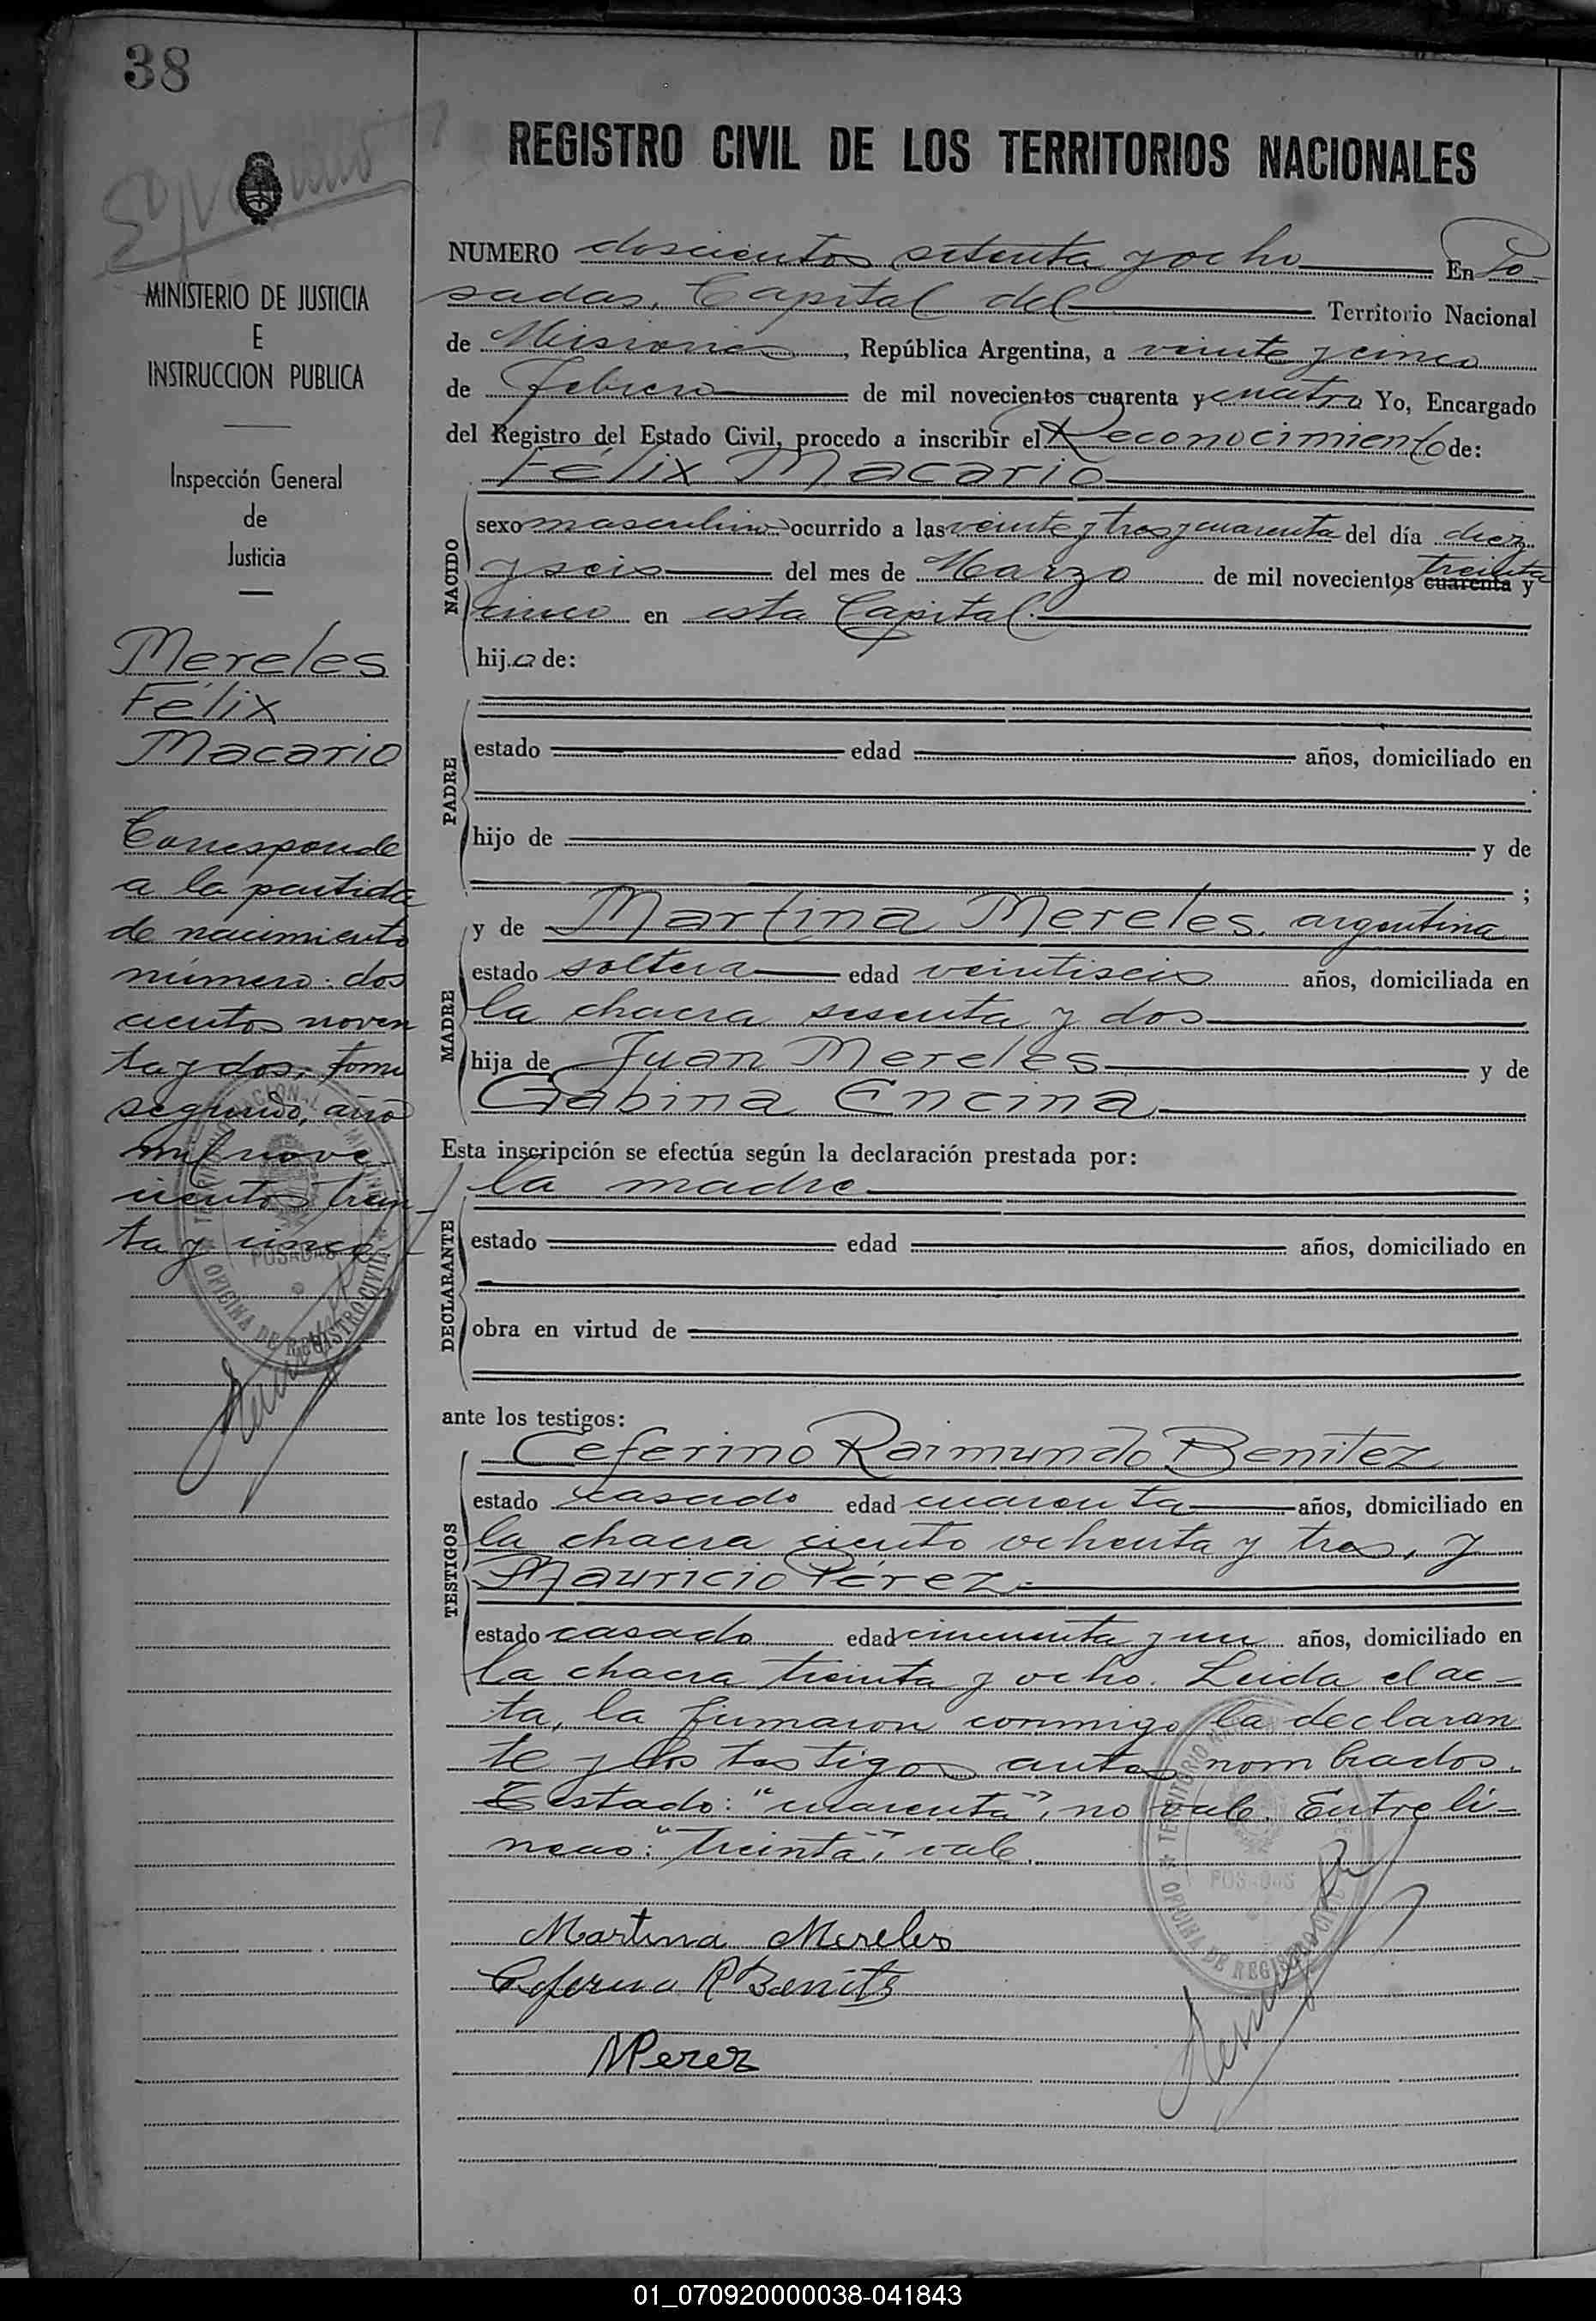 38
REGISTRO CIVIL DE LOS TERRITORIOS NACIONALES
MINISTERIO DE JUSTICIA
E
INSTRUCCION PUBLICA
Inspección General
de
Justicia
Mereles
Félix
Macario
Corresponde
a la partida
de nacimiento
número: dos
cientos noven
ta y dos, tomo
segundo, año
mil nove
cientos trein
ta y cinco
NUMERO doscientos setenta y ocho En Po-
sadas, Capital del Territorio Nacional
de Misiones, República Argentina, a veinte y cinco
de febrero de mil novecientos cuarenta y cuatro Yo, Encargado
del Registro del Estado Civil, procedo a inscribir el Reconocimiento de:
Félix Macario
NACIDO
sexo masculino ocurrido a las veinte y tres y cuarenta del día diez
y seis del mes de Marzo de mil novecientos cuarenta treinta y
cinco en esta Capital.
hijo de:
PADRE
estado edad años, domiciliado en
hijo de y de
;
MADRE
y de Martina Mereles, argentina
estado soltera edad veintiseis años, domiciliada en
la chacra sesenta y dos
hija de Juan Mereles y de
Gabina Encina
Esta inscripción se efectúa según la declaración prestada por:
la madre
DECLARANTE
estado edad años, domiciliado en
obra en virtud de
ante los testigos:
TESTIGOS
Ceferino Raimundo Benítez
estado casado edad cuarenta años, domiciliado en
la chacra ciento ochenta y tres, y
Mauricio Pérez
estado casado edad cincuenta y un años, domiciliado en
la chacra treinta y ocho. Leida el ac-
ta, la firmaron conmigo la declaran
te y los testigos antes nombrados.
Testado: "cuarenta", no vale. Entreli-
neas: "treinta", vale.
Martina Mereles
Ceferino R Benits
MPerez
POSADAS
OFICINA DE REGISTRO CIVIL
TERRITORIO
POSADAS
OFICINA DE REGISTRO CIVIL
01_070920000038-041843